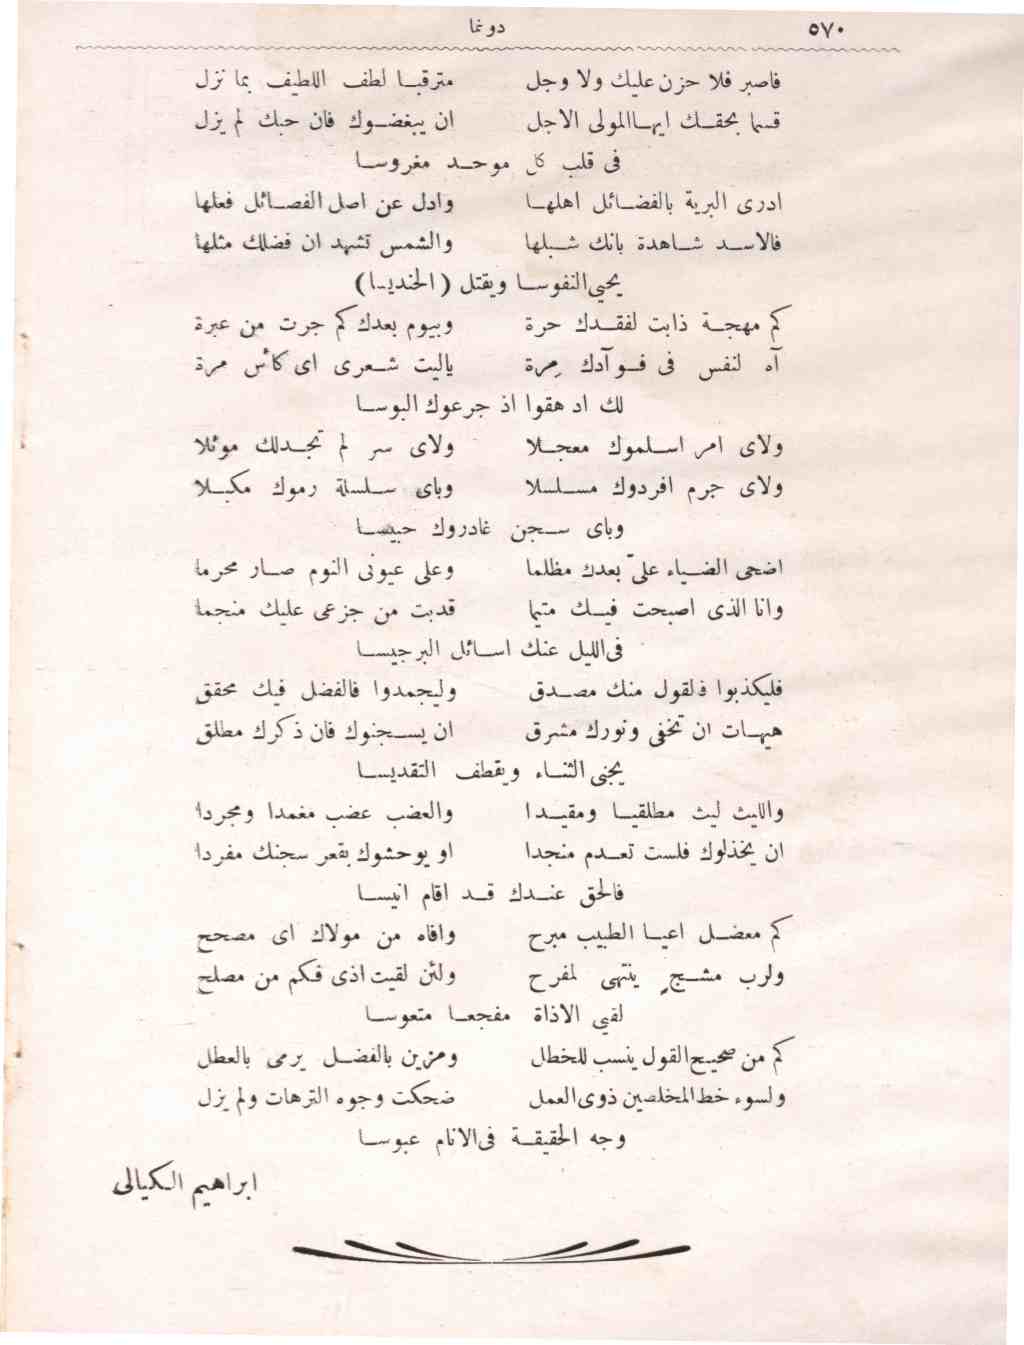 ٥٧٠ دونما
فاصبر فلا حزن عليك ولا وجل مترقبا لطف اللطيف بما نزل
قسما بحقك ايها المولى الاجل ان يبغضوك فان حبك لم يزل
فى قلب كل موحد مغروسا
ادرى البرية بالفضائل اهلها وادل عن اصل الفصائل فعلها
فالاسد شاهدة بانك شبلها والشمس تشهد ان فضلك مثلها
يحيى النفوسا ويقتل (الحنديسا)
كم مهجة ذابت لفقدك حرة وبيوم بعدك كم جرت من عبرة
آه لنفس فى فوآدك مرة ياليت شعرى اى كأس مرة
لك ادهقوا اذ جرعوك البوسا
ولاى امر اسلموك معجلا ولاى سر لم تجدلك موئلا
ولاى جرم افردوك مسلسلا وباى سلسلة رموك مكبلا
وباى سجن غادروك حبيسا
اضحى الضياء علىّ بعدك مظلما وعلى عيونى النوم صار محرما
وانا الذى اصبحت فيك متيما قدبت من جزعى عليك منجما
فى الليل عنك اسائل البرجيسا
فليكذبوا فالقول منك مصدق وليجمدوا فالفضل فيك محقق
هيهات ان تخفى ونورك مشرق ان يسجنوك فان ذكرك مطلق
يجنى الثناء ويقطف التقديسا
والليث ليث مطلقا ومقيدا والعضب عضب مغمدا ومجردا
ان يخذلوك فلست تعدم منجدا او يوحشوك بقعر سجنك مفردا
فالحق عندك قد اقام انيسا
كم معضل اعيا الطبيب مبرح وافاه من مولاك اى مصحح
ولرب مشجٍ ينتهى لمفرح ولئن لقيت اذى فكم من مصلح
لقى الاذاة مفجعا متعوسا
كم من صحيح القول ينسب للخطل ومزين بالفضل يرمى بالعطل
ولسوء خط المخلصين ذوى العمل ضحكت وجوه الترهات ولم يزل
وجه الحقيقة فى الانام عبوسا
ابراهيم الكيالى